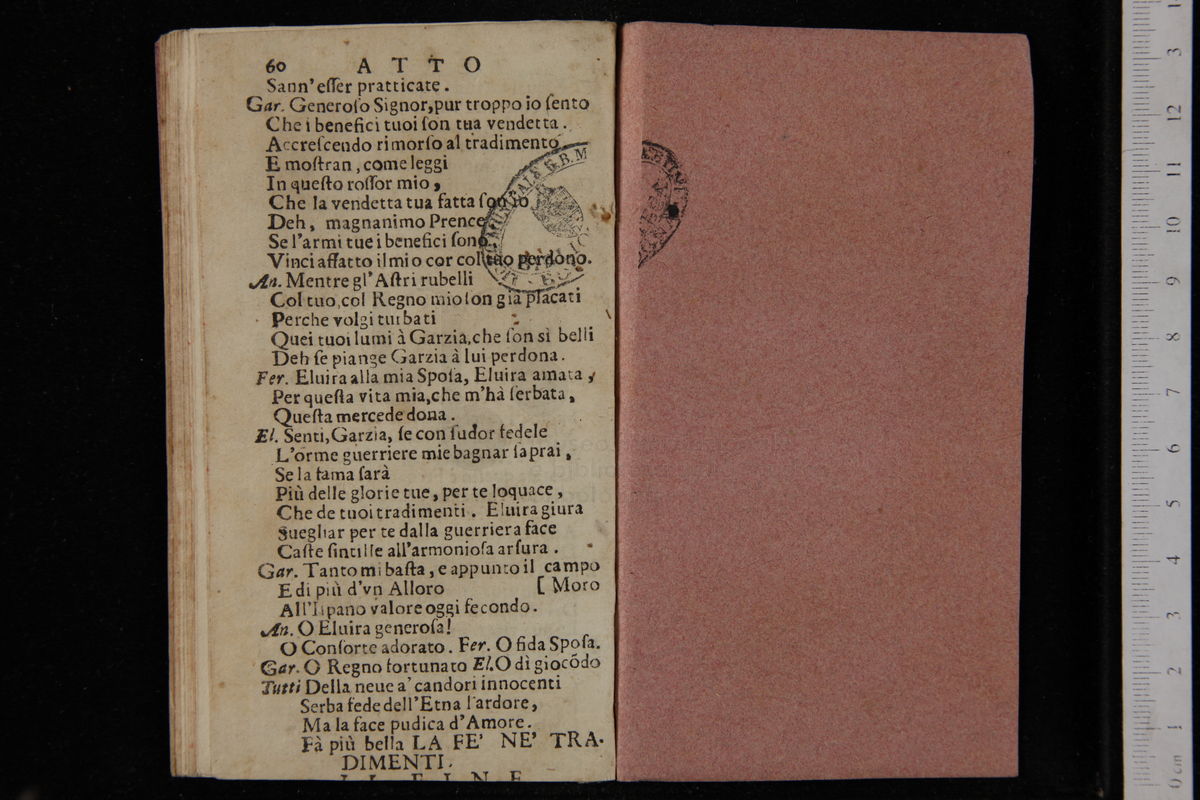 60 ATTO
Sann' eſſer pratticate.
Gar. Generoſo Signor, pur troppo io ſento
Che i benefici tuoi ſon tua vendetta.
Accreſcendo rimorſo al tradimento
E moſtran, come leggi
In queſto roſſor mio,
Che la vendetta tua fatta ſon io
Deh, magnanimo Prence
Se l'armi tue i benefici ſono,
Vinci affatto il mio cor col tuo perdono.
An. Mentre gl'Aſtri rubelli
Col tuo, col Regno mio ſon già placati
Perche volgi turbati
Quei tuoi lumi à Garzia, che ſon sì belli
Deh ſe piange Garzia à lui perdona.
Fer. Eluira alla mia Spoſa, Eluira amata,
Per queſta vita mia, che m'hà ſerbata,
Queſta mercede dona.
El. Senti, Garzia, ſe con ſudor fedele
L'orme guerriere mie bagnar ſaprai,
Se la fama ſarà
Più delle glorie tue, per te loquace,
Che de tuoi tradimenti. Eluira giura
Suegliar per te dalla guerriera face
Caſte ſintille all'armonioſa arſura.
Gar. Tanto mi baſta, e appunto il campo
E di più d'vn Alloro [ Moro
All'Iſpano valore oggi fecondo.
An. O Eluira generoſa!
O Conſorte adorato. Fer. O fida Spoſa.
Gar. O Regno fortunato El. O dì giocõdo
Tutti Della neue a' candori innocenti
Serba fede dell'Etna l'ardore,
Ma la face pudica d'Amore.
Fà più bella LA FE' NE' TRA-
DIMENTI.
IL FINE